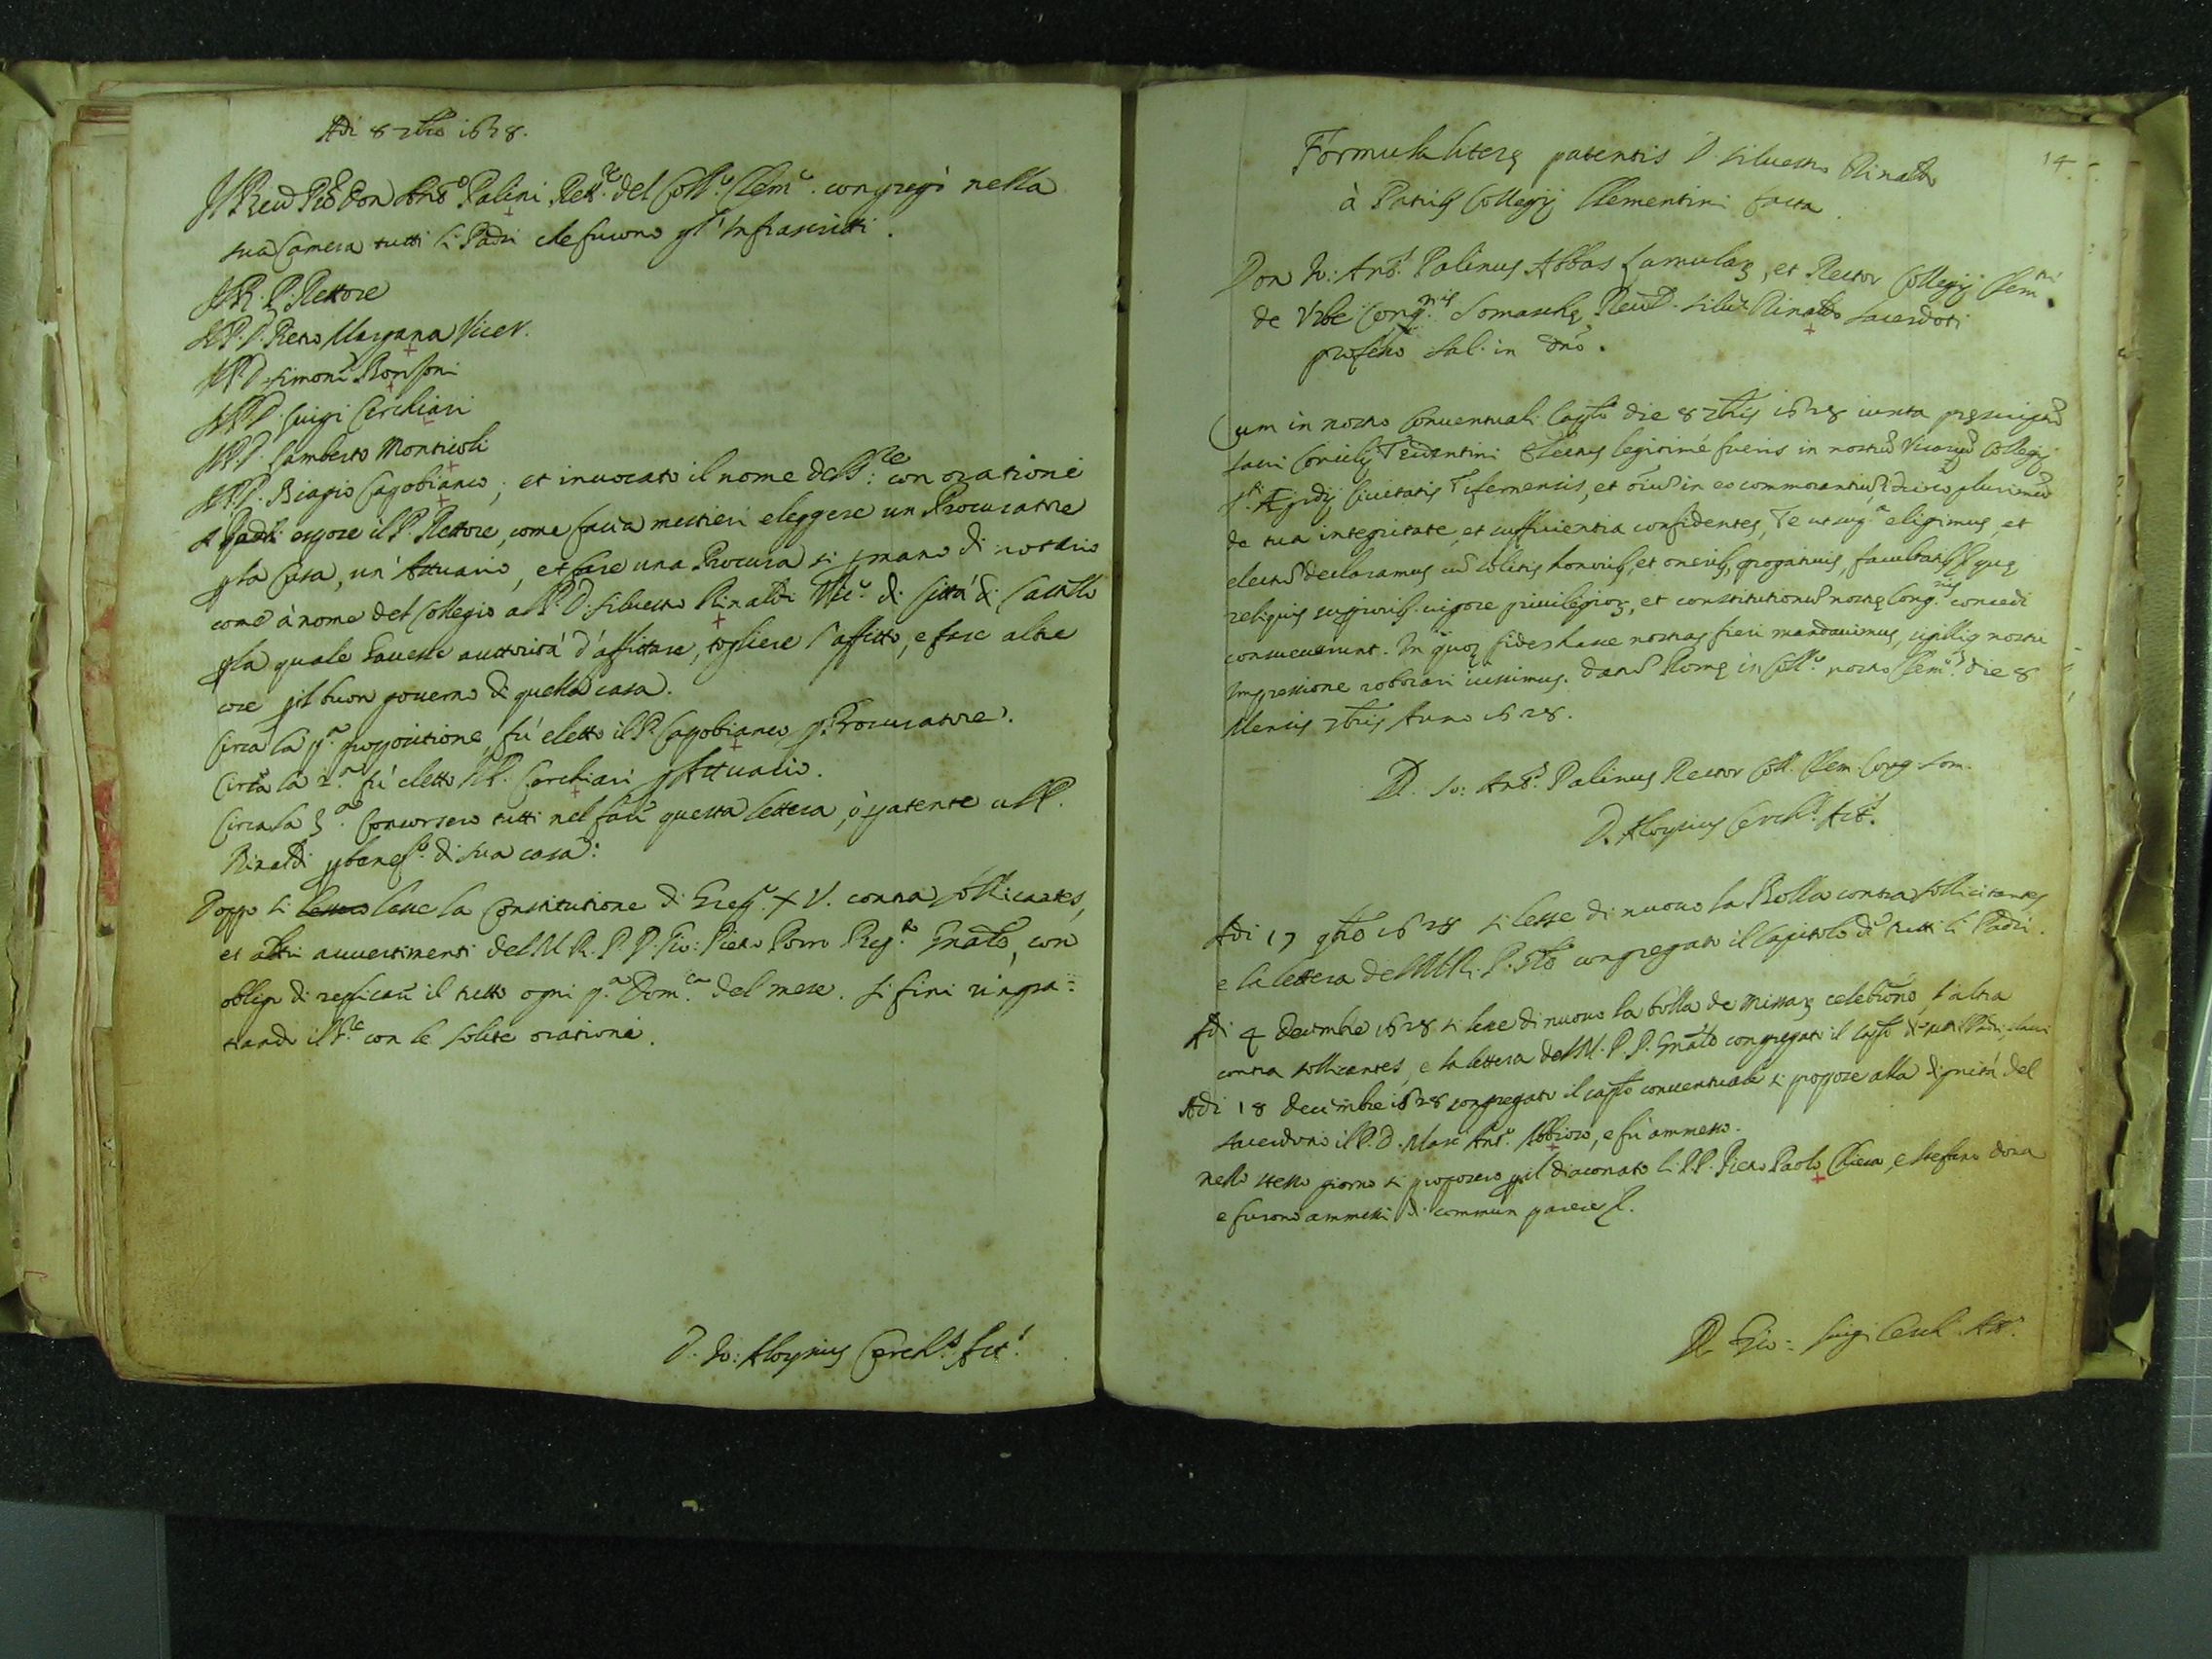 Adi 8 7bre 1628.
Il Reud Prē Don Antº Palini Rettre del Collº Clemº congregò nella
sua Camera tutti li Padri che furono gl'infrascritti.
Il R. P. Rettore
Il P. D. Pietro Margana Vicer.
Il P. D. Simone
Il P. D. Luigi Cerchiari
Il P. D. Lamberto Monticoli
Il P. D. Biagio Capobianco; et inuocato il nome del Sre con orationi
espose il P. Rettore, come facea mestieri eleggere un Procuratore
p la Casa, un'Attuario, et fare una Procura si p mano di notario
come à nome del Collegio al P. D. Siluestro Rinaldi Vicº di Città di Castello
p la quale hauesse auttorità d'affittare, togliere l'affitto, e fare altre
cose p il buon gouerno di quella casa.
Circa la pª propositione, fù eletto il P. Capobianco p Procuratore.
Circa la 2ª fù eletto il P. Cerchiari p Attuario.
Circa la 3ª Concorsero tutti nel far questa lettera, ò patente al P.
Rinaldi p benefº di sua casa:
Doppo si lesse la Constitutione di Gregº XV. contra sollicitantes,
et altri auuertimenti del M. R. P. D. Gio: Pietro Porro Prepto Gnāle, con
obligo di replicare il tutto ogni pª Domca del mese. Si finì ringra=
tiando il Sre con le solite orationi.
D. Jo: Aloysius Cerchs Actˢ
14
Formula literę patentis D. Siluestro Rinaldo
à Patribus Collegij Clementini facta.
Don Jo: Antˢ Palinus Abbas, et Rector Collegij Clemni
de Vrbe Congnis Somaschę Reudº D. Siluº Rinaldo sacerdoti
professo sal. in Dnō.
Cum in nostro Conuentuali Caplo die 8 7bris 1628 iuxta
sacri Concilij Tridentini electus legitimè fueris in nostrū Vicariū Collegij
Sti Ægidij Ciuitatis Tifernensis, et oīum in eo commorantiū, idcirco plurimū
de tua integritate, et sufficientia confidentes, Te ut supª eligimus, et
electū declaramus cū solitis honoribus, et oneribus, prerogatiuis, facultatibusque quę
reliquis superioribus vigore priuilegiorum, et constitutionū nostrę Congnis concedi
consueuerunt. In quorum fidem hasce nostras fieri mandauimus, sigilliq nostri
Impressione roborari iussimus. Datū Romę in Collº nostro Clemº die 8
Mensis 7bris Anno 1628.
D. Jo: Antˢ Palinus Rector Coll. Clem. Cong. Som.
D. Aloysius Cerchs Actˢ.
Adi 17 9bre 1628 si lesse di nuouo la Bolla contra sollicitantes
e la lettera del M. R. P. Gnāle congregato il Capitolo di tutti li Padri.
Adi 4 Decembre 1628 si lesse di nuouo la bolla de missarum celebrōne, l'altra
contra sollicitantes, e la lettera del M. R. P. Gnāle congregato il Caplo di tutti li Padri,
Adi 18 Decembre 1628 congregato il caplo conuentuale si propose alla dignità del
sacerdotio il P. D. Marc'Antº, e fù ammesso.
nello stesso giorno si proposero p il diaconato li PP. Pietro Paolo Chiesa, e Stefano Doria
e furono ammessi di commun parere.
D. Gio: Luigi Cerch. Attˢ.